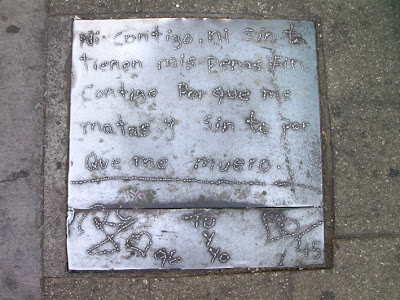 Ni contigo, ni sin ti
tienen mis penas fin
contigo Porque me
matas y sin te por
que me muero.
TU
y
yo